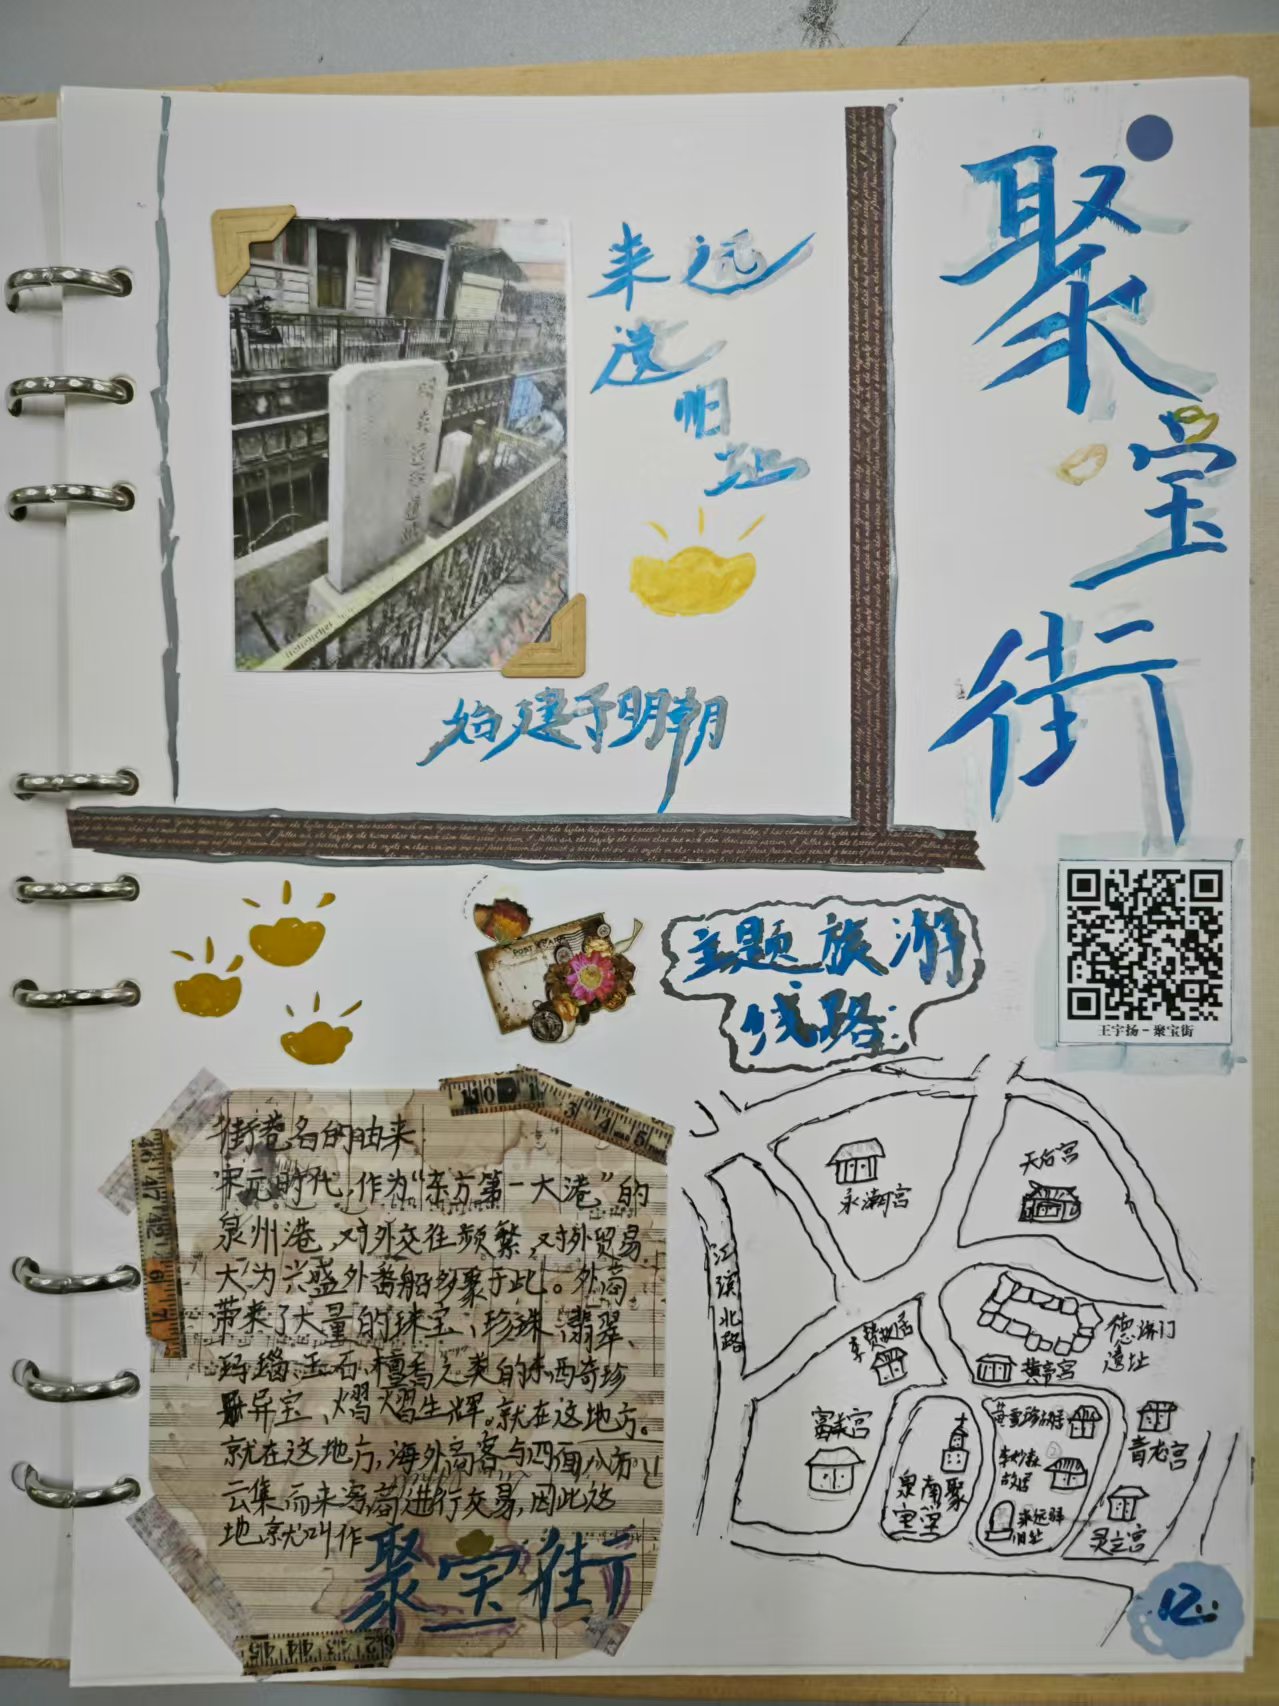 聚宝街
来远
驿
旧址
始建于明朝
POST CARD
主题旅游
线路:
王宇扬-聚宝街
街巷名的由来
宋元时代,作为“东方第一大港,”的
泉州港,对外交往频繁,对外贸易
大为兴盛外番船多聚于此。外商
带来了大量的珠宝、珍珠、翡翠、
玛瑙、玉石、檀香之类的东西奇珍
异宝、熠熠生辉。就在这地方。
就在这地方,海外商客与四面八方
云集而来客商进行交易,因此这
地就叫作
聚宝街
永潮宫
天后宫
江滨北路
李贽故居
德济门
遗址
黄帝宫
富美宫
泉南聚
宝堂
黄重珍故居
李妙森
故居
来远驿
旧址
青龙宫
灵立宫
12